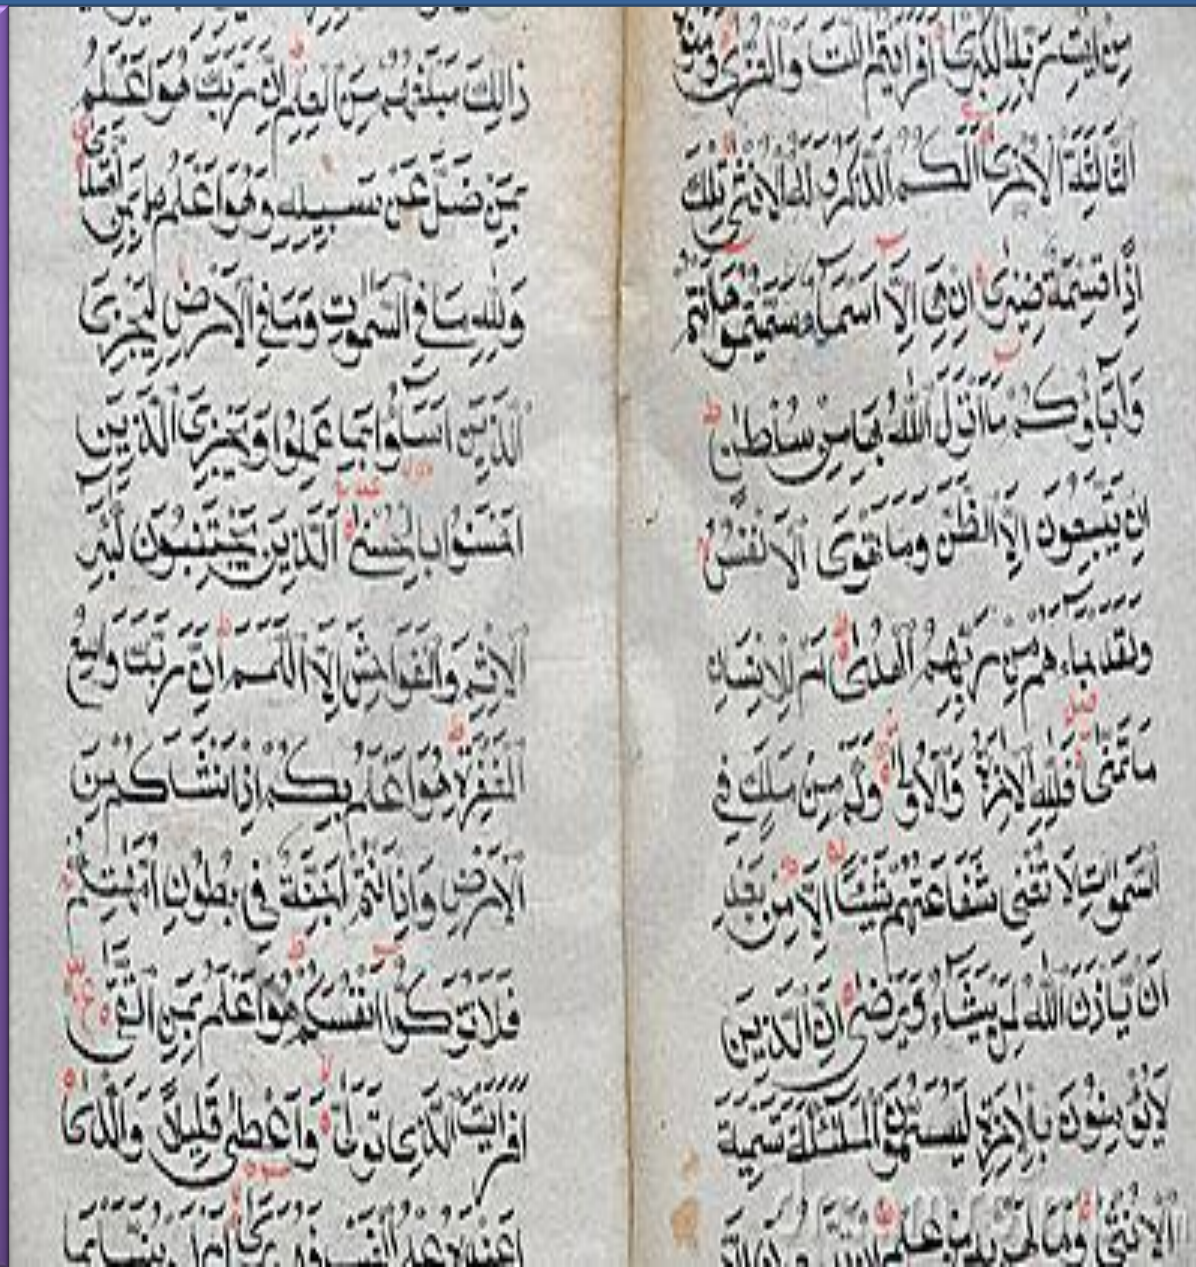 من ايت ربه الكبرى افرايتم اللت والعزى ومنوة
الثالثة الاخرى الكم الذكر وله الانثى تلك
اذا قسمة ضيزى ان هي الا اسماء سميتموها انتم
وآباؤكم ما انزل الله بها من سلطن
ان يتبعون الا الظن وما تهوى الانفس
ولقد جاءهم من ربهم الهدى ام للانسان
ما تمنى فلله الاخرة والاولى وكم من ملك في
السموت لا تغني شفاعتهم شيئا الا من بعد
ان ياذن الله لمن يشاء ويرضى ان الذين
لا يؤمنون بالاخرة ليسمون الملئكة تسمية
الانثى وما لهم به من علم ان
ذالك مبلغهم من العلم ان ربك هو اعلم
بمن ضل عن سبيله وهو اعلم بمن اهتدى
ولله ما في السموت وما في الارض ليجزي
الذين اساؤا بما عملوا ويجزي الذين
احسنوا بالحسنى الذين يجتنبون كبئر
الاثم والفواحش الا اللمم ان ربك واسع
المغفرة هو اعلم بكم اذ انشاكم من
الارض واذ انتم اجنة في بطون امهتكم
فلا تزكوا انفسكم هو اعلم بمن اتقى
افرايت الذي تولى واعطى قليلا واكدى
اعنده علم الغيب فهو يرى ام لم ينبا بما